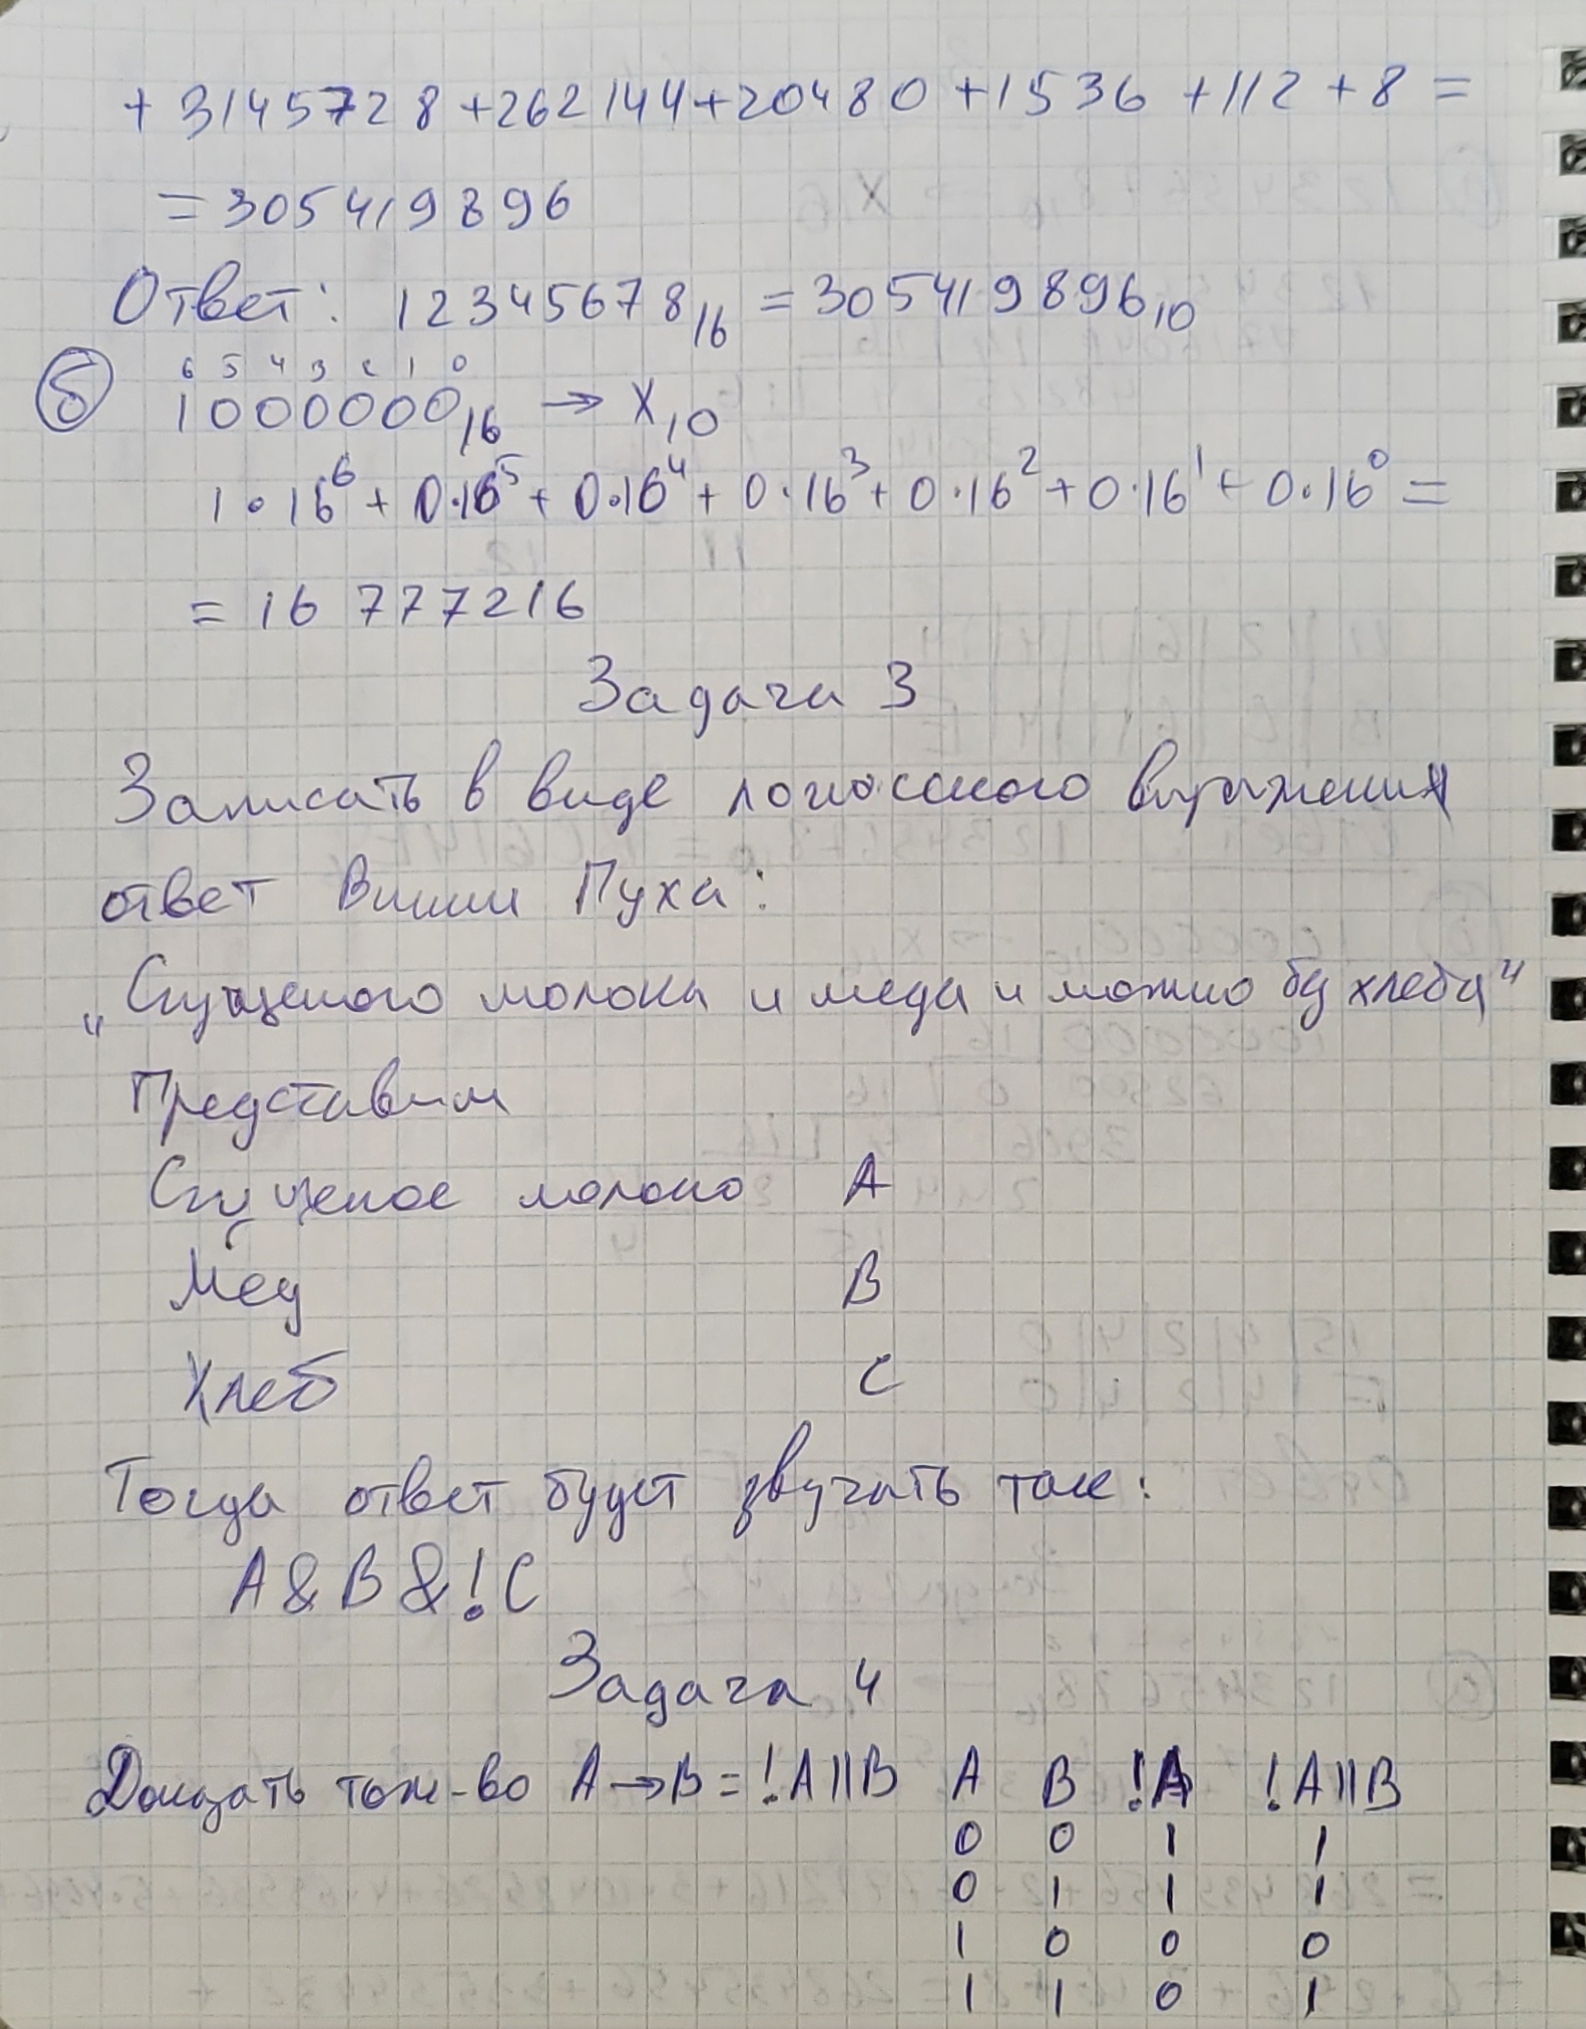 + 3145728 + 262144 + 20480 + 1536 + 112 + 8 =
= 305419896
Ответ: 12345678₁₆ = 305419896₁₀
6 5 4 3 2 1 0
б 1000000₁₆ → X₁₀
1·16⁶ + 0·16⁵ + 0·16⁴ + 0·16³ + 0·16² + 0·16¹ + 0·16⁰ =
= 16 777216
Задача 3
Записать в виде логического выражения
ответ Винни Пуха:
„Сгущеного молока и меда и можно бу хлеба"
Представим
Сгущеное молоко A
Мед B
Хлеб C
Тогда ответ будет звучать так:
A & B & !C
Задача 4
Доказать тож-во A → B = !A || B A B !A !A || B
0 0 1 1
0 1 1 1
1 0 0 0
1 1 0 1